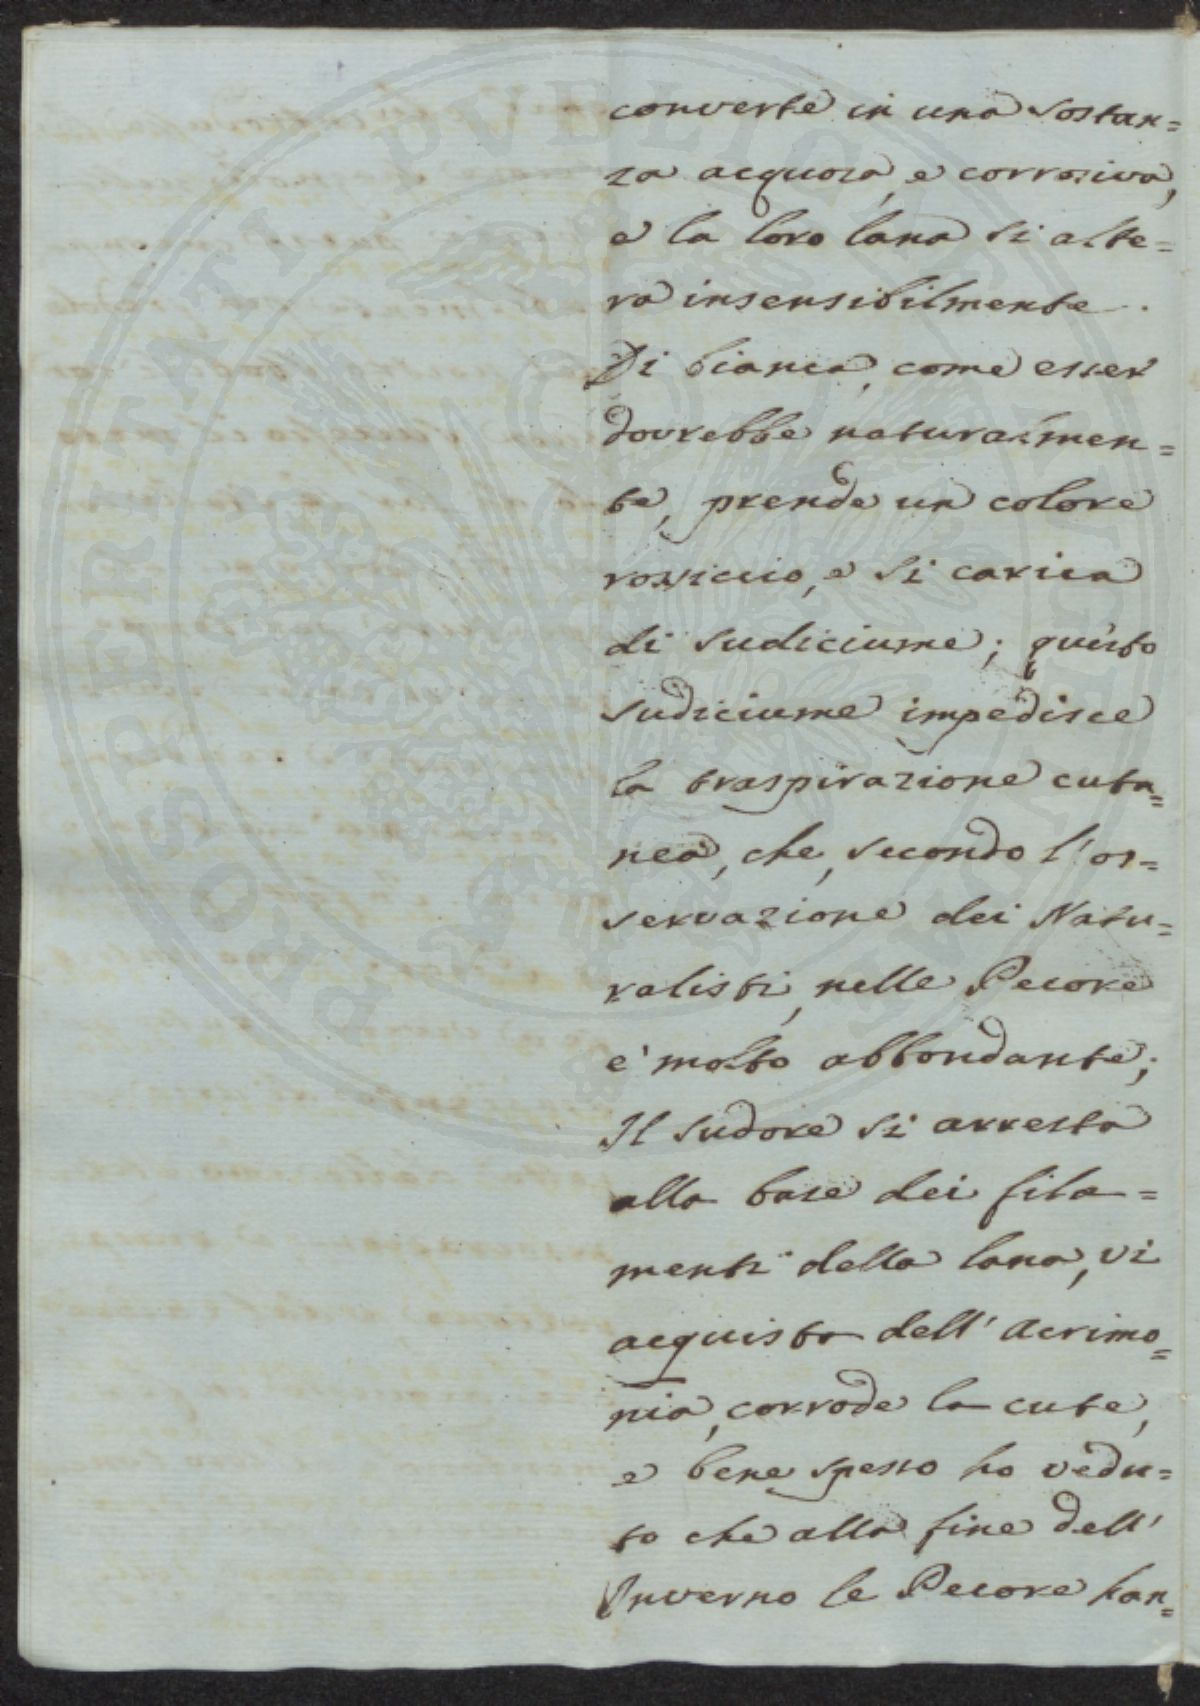 converte in una sostan=
za acquosa, e corrosiva,
e la loro lana si alte=
ra insensibilmente.
Di bianca, come esser
dovrebbe naturalmen=
te, prende un colore
rossiccio, e si carica
di sudiciume; questo
sudiciume impedisce
la traspirazione cuta=
nea, che, secondo l'os=
servazione dei Natu=
ralisti, nelle Pecore
e' molto abbondante;
Il sudore si arresta
alla base dei fila=
menti della lana, vi
acquista dell'Acrimo=
nia, corrode la cute,
e bene spesso ho vedu=
to che alla fine dell'
Inverno le Pecore han=
PROSPERITATI PVBLICAE AVGENDAE